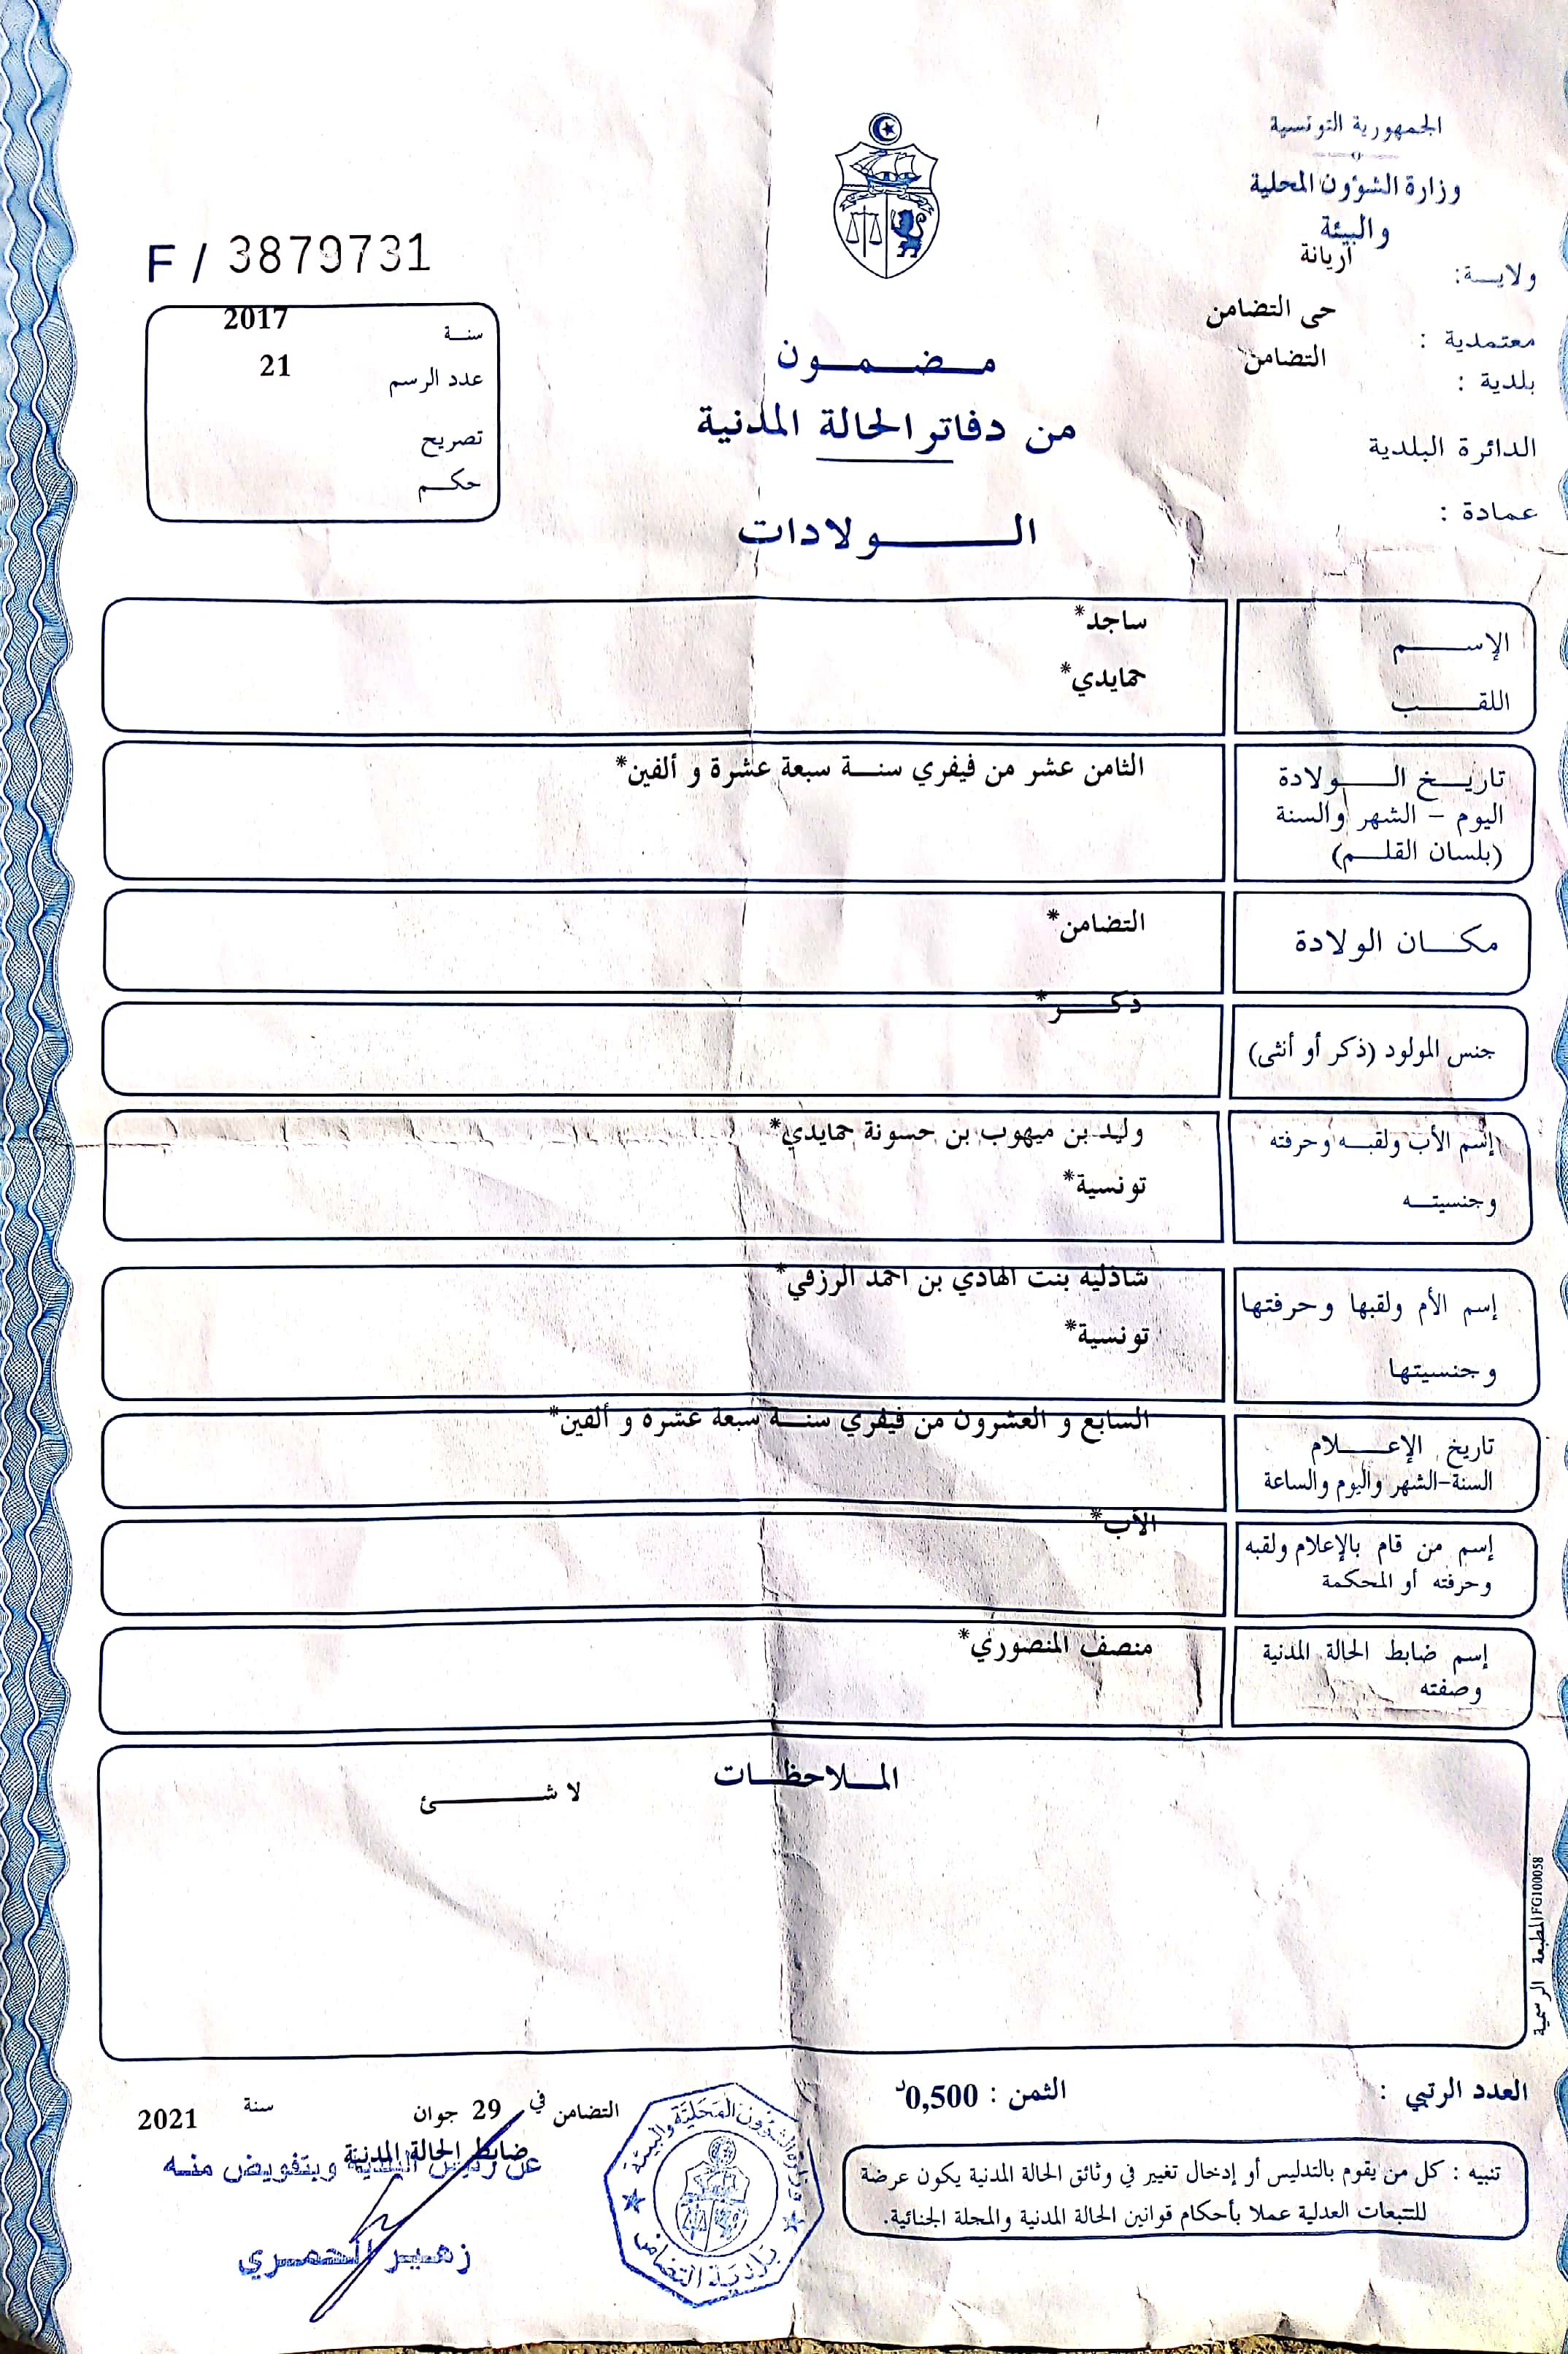 الجمهورية التونسية
وزارة الشؤون المحلية
والبيئة
ولايــة: أريانة
معتمدية : حى التضامن
بلدية : التضامن
الدائرة البلدية
عمادة :
F / 3879731
سنــة 2017
عدد الرسم 21
تصريح
حكــم
مـــضـــمـــون
من دفاتر الحالة المدنية
الـــــولادات
الإســــم ساجد*
اللقــــب حمايدي*
تاريــخ الـــولادة الثامن عشر من فيفري سنــة سبعة عشرة و ألفين*
اليوم – الشهر والسنة
(بلسان القلــم)
مكــان الولادة التضامن*
جنس المولود (ذكر أو أنثى) ذكـــر*
إسم الأب ولقبــه وحرفته وليد بن ميهوب بن حسونة حمايدي*
وجنسيتــه تونسية*
إسم الأم ولقبها وحرفتها شاذلية بنت الهادي بن احمد الرزقي*
وجنسيتها تونسية*
تاريخ الإعــــلام السابع و العشرون من فيفري سنــة سبعة عشرة و ألفين*
السنة-الشهر واليوم والساعة
إسم من قام بالإعلام ولقبه الأب*
وحرفته أو المحكمة
إسم ضابط الحالة المدنية منصف المنصوري*
وصفته
المــلاحظــات
لا شـــــئ
المطبعة الرسمية FG100058
العدد الرتبي :
الثمن : 0,500د
التضامن في 29 جوان سنة 2021
ضابط الحالة المدنية
عن رئيس البلدية وبتفويض منه
زهير الحمري
وزارة الشؤون المحلية والبيئة
بلدية التضامن
تنبيه : كل من يقوم بالتدليس أو إدخال تغيير في وثائق الحالة المدنية يكون عرضة
للتتبعات العدلية عملا بأحكام قوانين الحالة المدنية والمجلة الجنائية.